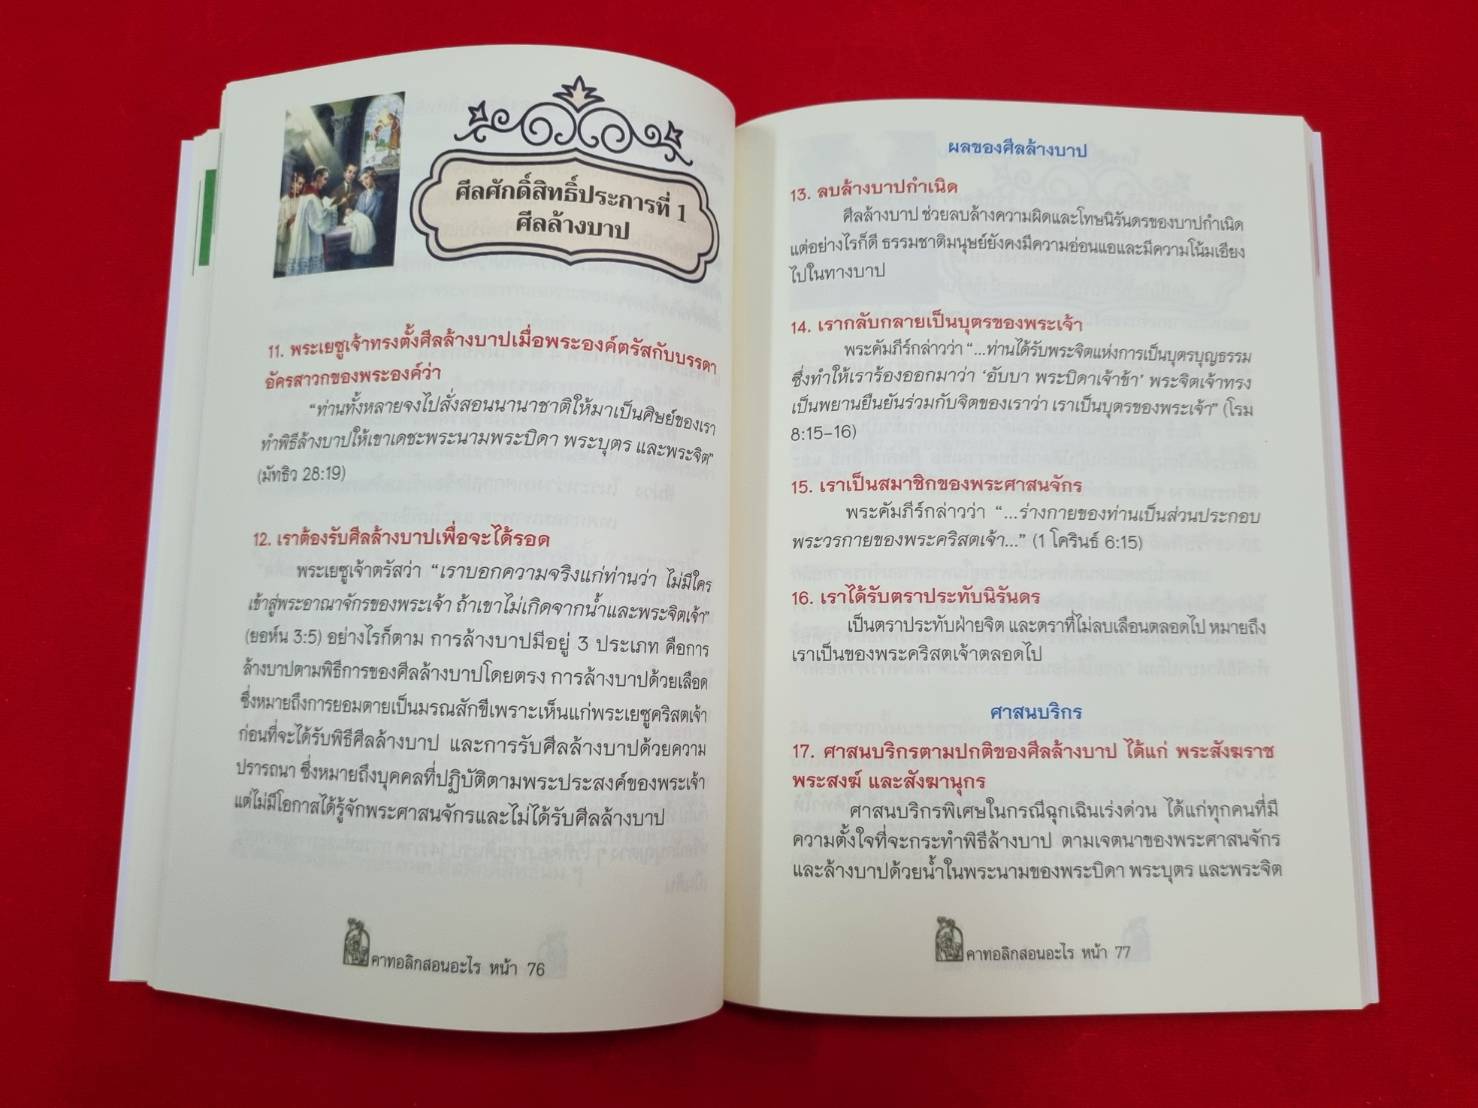 ศีลศักดิ์สิทธิ์ประการที่ 1
ศีลล้างบาป
11. พระเยซูเจ้าทรงตั้งศีลล้างบาปเมื่อพระองค์ตรัสกับบรรดา
อัครสาวกของพระองค์ว่า
“ท่านทั้งหลายจงไปสั่งสอนนานาชาติให้มาเป็นศิษย์ของเรา
ทำพิธีล้างบาปให้เขาเดชะพระนามพระบิดา พระบุตร และพระจิต”
(มัทธิว 28:19)
12. เราต้องรับศีลล้างบาปเพื่อจะได้รอด
พระเยซูเจ้าตรัสว่า “เราบอกความจริงแก่ท่านว่า ไม่มีใคร
เข้าสู่พระอาณาจักรของพระเจ้า ถ้าเขาไม่เกิดจากน้ำและพระจิตเจ้า”
(ยอห์น 3:5) อย่างไรก็ตาม การล้างบาปมีอยู่ 3 ประเภท คือการ
ล้างบาปตามพิธีการของศีลล้างบาปโดยตรง การล้างบาปด้วยเลือด
ซึ่งหมายถึงการยอมตายเป็นมรณสักขีเพราะเห็นแก่พระเยซูคริสตเจ้า
ก่อนที่จะได้รับพิธีศีลล้างบาป และการรับศีลล้างบาปด้วยความ
ปรารถนา ซึ่งหมายถึงบุคคลที่ปฏิบัติตามพระประสงค์ของพระเจ้า
แต่ไม่มีโอกาสได้รู้จักพระศาสนจักรและไม่ได้รับศีลล้างบาป
คาทอลิกสอนอะไร หน้า 76
ผลของศีลล้างบาป
13. ลบล้างบาปกำเนิด
ศีลล้างบาป ช่วยลบล้างความผิดและโทษนิรันดรของบาปกำเนิด
แต่อย่างไรก็ดี ธรรมชาติมนุษย์ยังคงมีความอ่อนแอและมีความโน้มเอียง
ไปในทางบาป
14. เรากลับกลายเป็นบุตรของพระเจ้า
พระคัมภีร์กล่าวว่า “...ท่านได้รับพระจิตแห่งการเป็นบุตรบุญธรรม
ซึ่งทำให้เราร้องออกมาว่า ‘อับบา พระบิดาเจ้าข้า’ พระจิตเจ้าทรง
เป็นพยานยืนยันร่วมกับจิตของเราว่า เราเป็นบุตรของพระเจ้า” (โรม
8:15–16)
15. เราเป็นสมาชิกของพระศาสนจักร
พระคัมภีร์กล่าวว่า “...ร่างกายของท่านเป็นส่วนประกอบ
พระวรกายของพระคริสตเจ้า...” (1 โครินธ์ 6:15)
16. เราได้รับตราประทับนิรันดร
เป็นตราประทับฝ่ายจิต และตราที่ไม่ลบเลือนตลอดไป หมายถึง
เราเป็นของพระคริสตเจ้าตลอดไป
ศาสนบริกร
17. ศาสนบริกรตามปกติของศีลล้างบาป ได้แก่ พระสังฆราช
พระสงฆ์ และสังฆานุกร
ศาสนบริกรพิเศษในกรณีฉุกเฉินเร่งด่วน ได้แก่ทุกคนที่มี
ความตั้งใจที่จะกระทำพิธีล้างบาป ตามเจตนาของพระศาสนจักร
และล้างบาปด้วยน้ำในพระนามของพระบิดา พระบุตร และพระจิต
คาทอลิกสอนอะไร หน้า 77